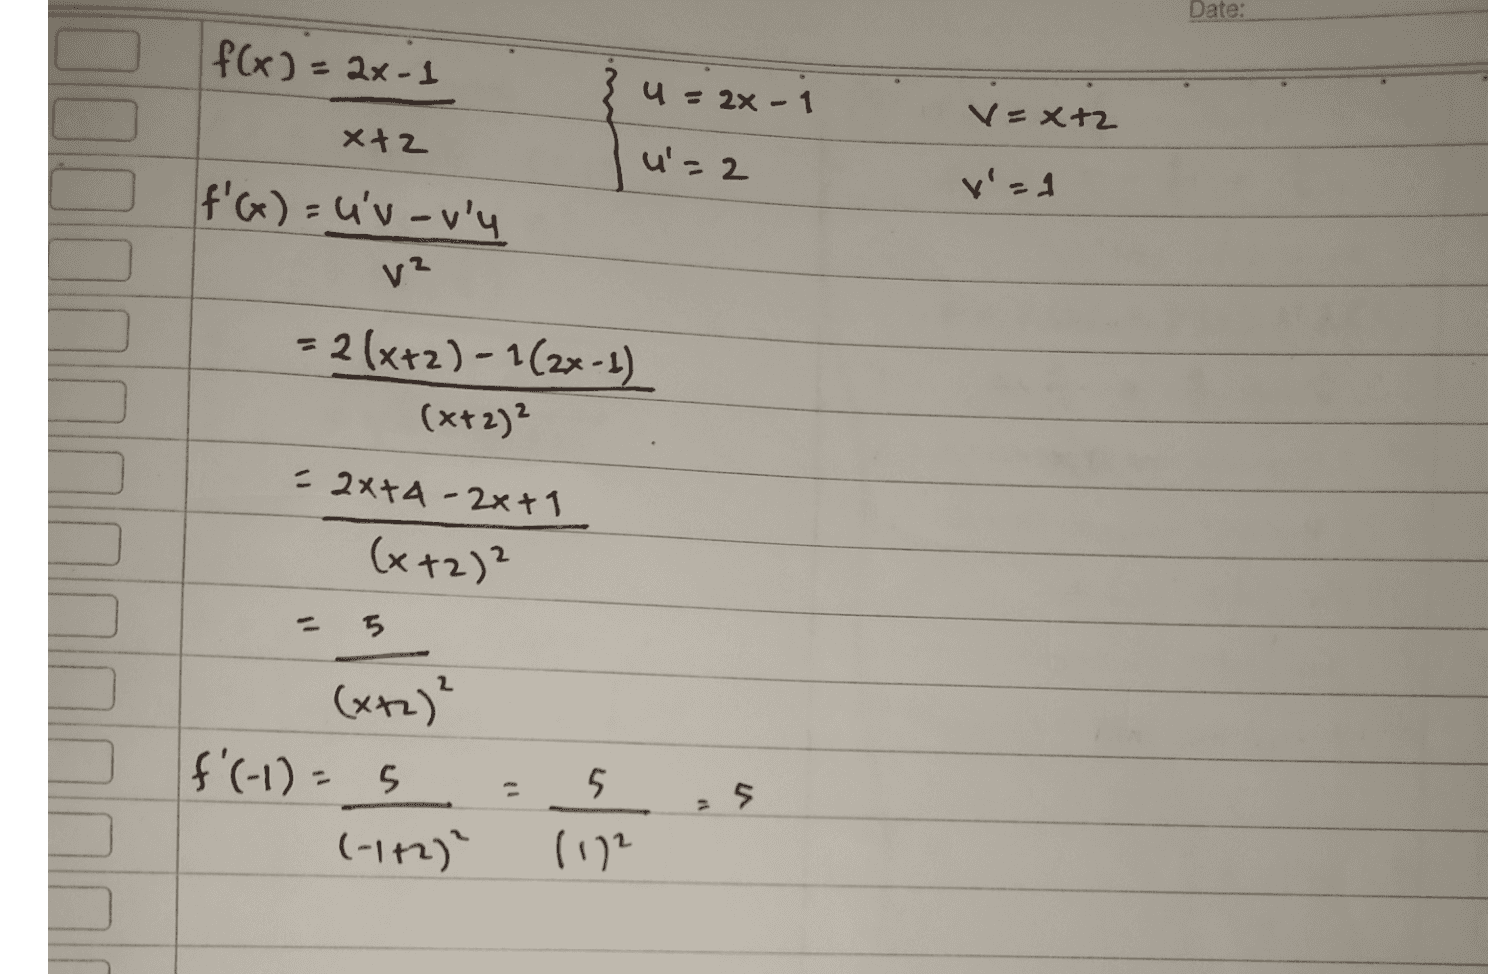 Date:
f(x) = 2x-1 / x+2 { u = 2x-1 v = x+2
u' = 2 v' = 1
f'(x) = u'v - v'u / v²
= 2(x+2) - 1(2x-1) / (x+2)²
= 2x+4 - 2x+1 / (x+2)²
= 5 / (x+2)²
f'(-1) = 5 / (-1+2)² = 5 / (1)² = 5